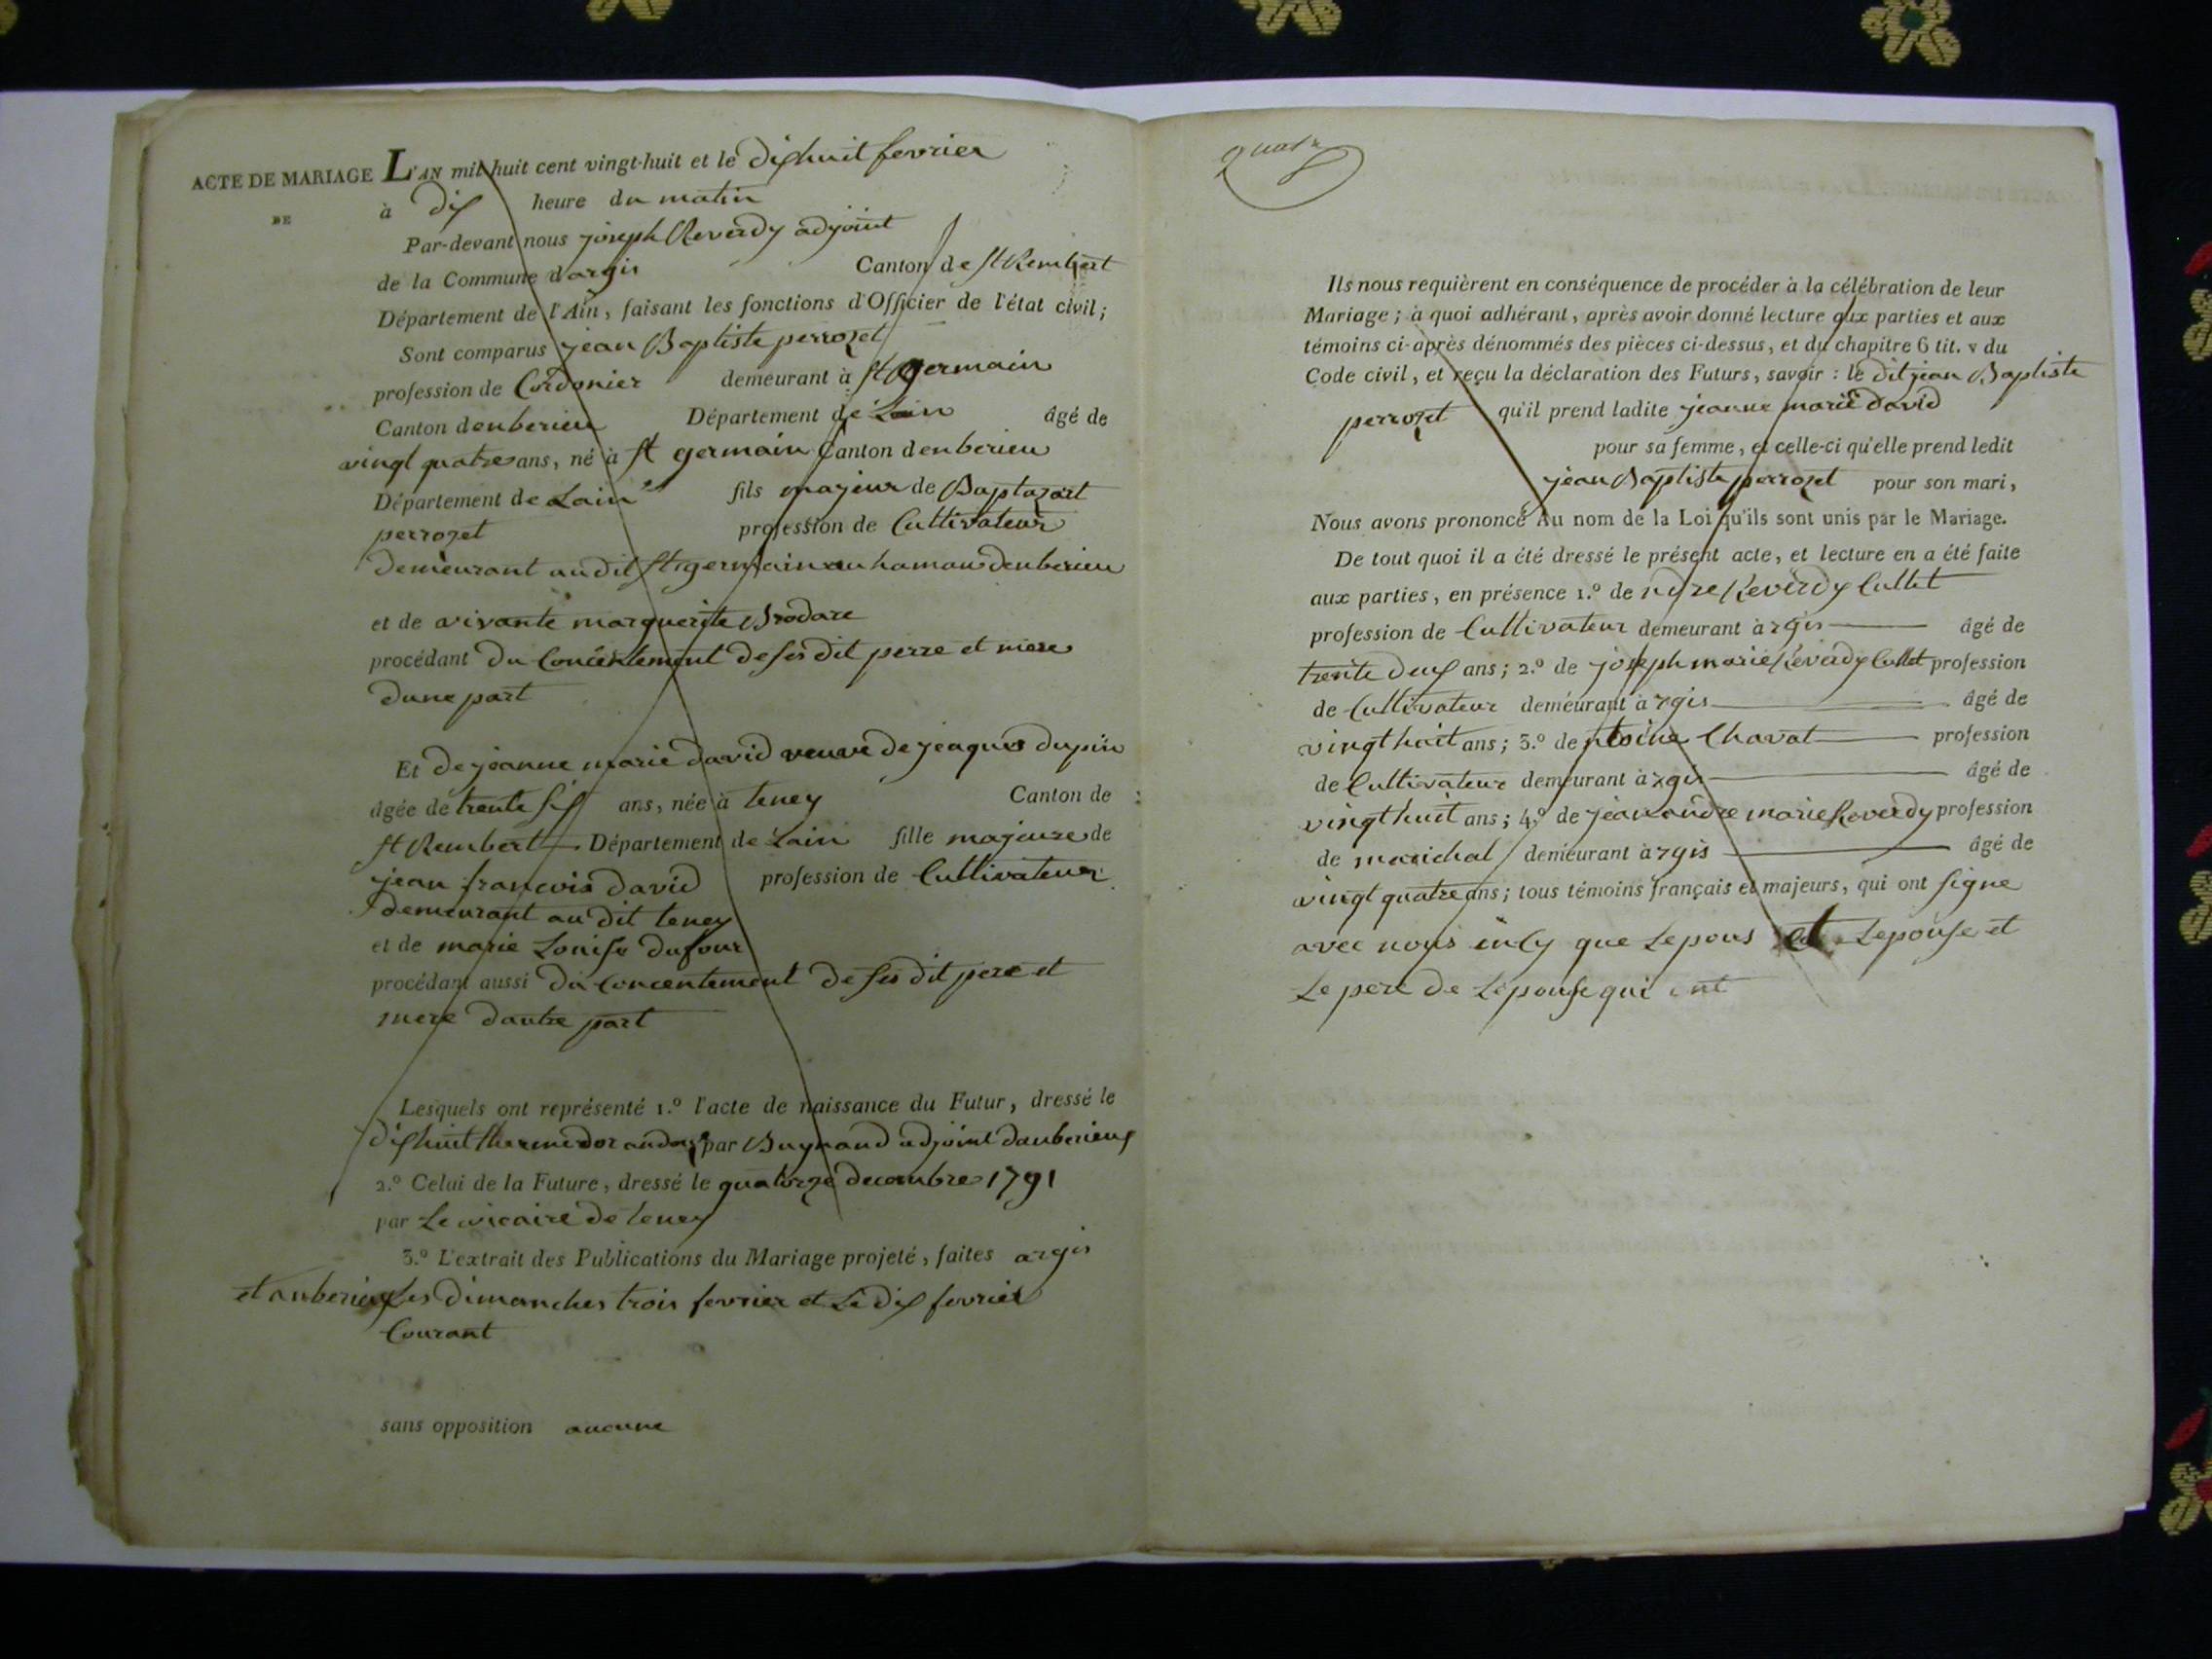 ACTE DE MARIAGE L'AN mil huit cent vingt-huit et le dixhuit fevrier
DE à dix heure du matin
Par-devant nous joseph Reverdy adjoint
de la Commune dargis Canton de st Rembert
Département de l'Ain, faisant les fonctions d'Officier de l'état civil;
Sont comparus jean Baptiste perrozet
profession de Cordonier demeurant à st germain
Canton denberieu Département de Lain âgé de
vingt quatre ans, né à st germain Canton denberieu
Département de Lain fils majeur de Baptazart
perrozet profession de Cultivateur
demeurant audit st germain au hamau denberieu
et de vivante marguerite Brodare
procédant du Concentement de ses dit perre et mere
dune part
Et de jeanne marie david veuve de jeaques dupin
âgée de trente six ans, née à teney Canton de
st Rembert Département de Lain fille majeure de
jean francois david profession de Cultivateur
demeurant au dit teney
et de marie Louise dufour
procédant aussi du concentement de ses dit pere et
mere dautre part
Lesquels ont représenté 1.º l'acte de naissance du Futur, dressé le
dixhuit thermidor par adjoint dauberieux
2.º Celui de la Future, dressé le quatorze decembre 1791
par Le vicaire de teney
3.º L'extrait des Publications du Mariage projeté, faites argis
et anberieux les dimanches trois fevrier et Le dix fevrier
Courant
sans opposition aucune
quatr
Ils nous requièrent en conséquence de procéder à la célébration de leur
Mariage; à quoi adhérant, après avoir donné lecture aux parties et aux
témoins ci-après dénommés des pièces ci-dessus, et du chapitre 6 tit. v du
Code civil, et reçu la déclaration des Futurs, savoir : le dit jean Baptiste
perrozet qu'il prend ladite jeanne marie david
pour sa femme, et celle-ci qu'elle prend ledit
jean Baptiste perrozet pour son mari,
Nous avons prononcé Au nom de la Loi qu'ils sont unis par le Mariage.
De tout quoi il a été dressé le présent acte, et lecture en a été faite
aux parties, en présence 1.º de ndre Reverdy Cullet
profession de Cultivateur demeurant à rgis âgé de
trente deux ans; 2.º de joseph marie Reverdy Cullet profession
de Cultivateur demeurant à rgis âgé de
vingt huit ans; 3.º de ntoine Chavat profession
de Cultivateur demeurant à rgis âgé de
vingt huit ans; 4.º de jean andre marie Reverdy profession
de marichal demeurant à rgis âgé de
vingt quatre ans; tous témoins français et majeurs, qui ont signe
avec nous incy que Lepous et Lepouse et
Le pere de Lepouse qui ont